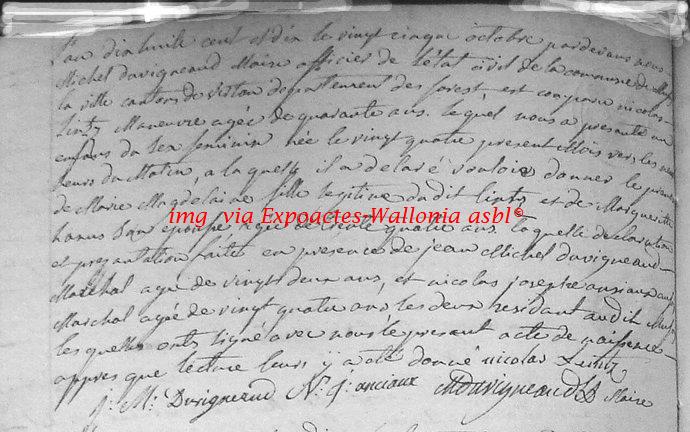 L'an dix huile cent et dix le vingt cinque octobre pardevans nous
Michel duvigneaud Maire officier de l'état civil de la commune de Mussy
la ville canton de virton departement des forest est conparu nicolas
Lintz Maneuvre agée de quarante ans lequel nous a presanté un
enfans du Sex feminin née le vingt quatre present Mois vers les
heurs du Matin, a laquelle il a delaré vouloir donner le prenom
de Marie Magdelaine fille legitime dudit lintz et de Margueritte
hanus San epousse agée de trente quatre ans laquelle declaration
et presantation faite en presence de jean Michel duvigneaud
Marechal agée de vingt deux ans, et nicolas josephe anxiaux aussi
Marchal agée de vingt quatre ans les deux residant audit Mussy
les quelles onts signé avec nous le present acte de naissence
appres que lecture leurs y a eté donné nicolas Lintz
J. M. Duvigneaud N. J. anciaux MDuvigneaud Maire
img via Expoactes-Wallonia asbl©